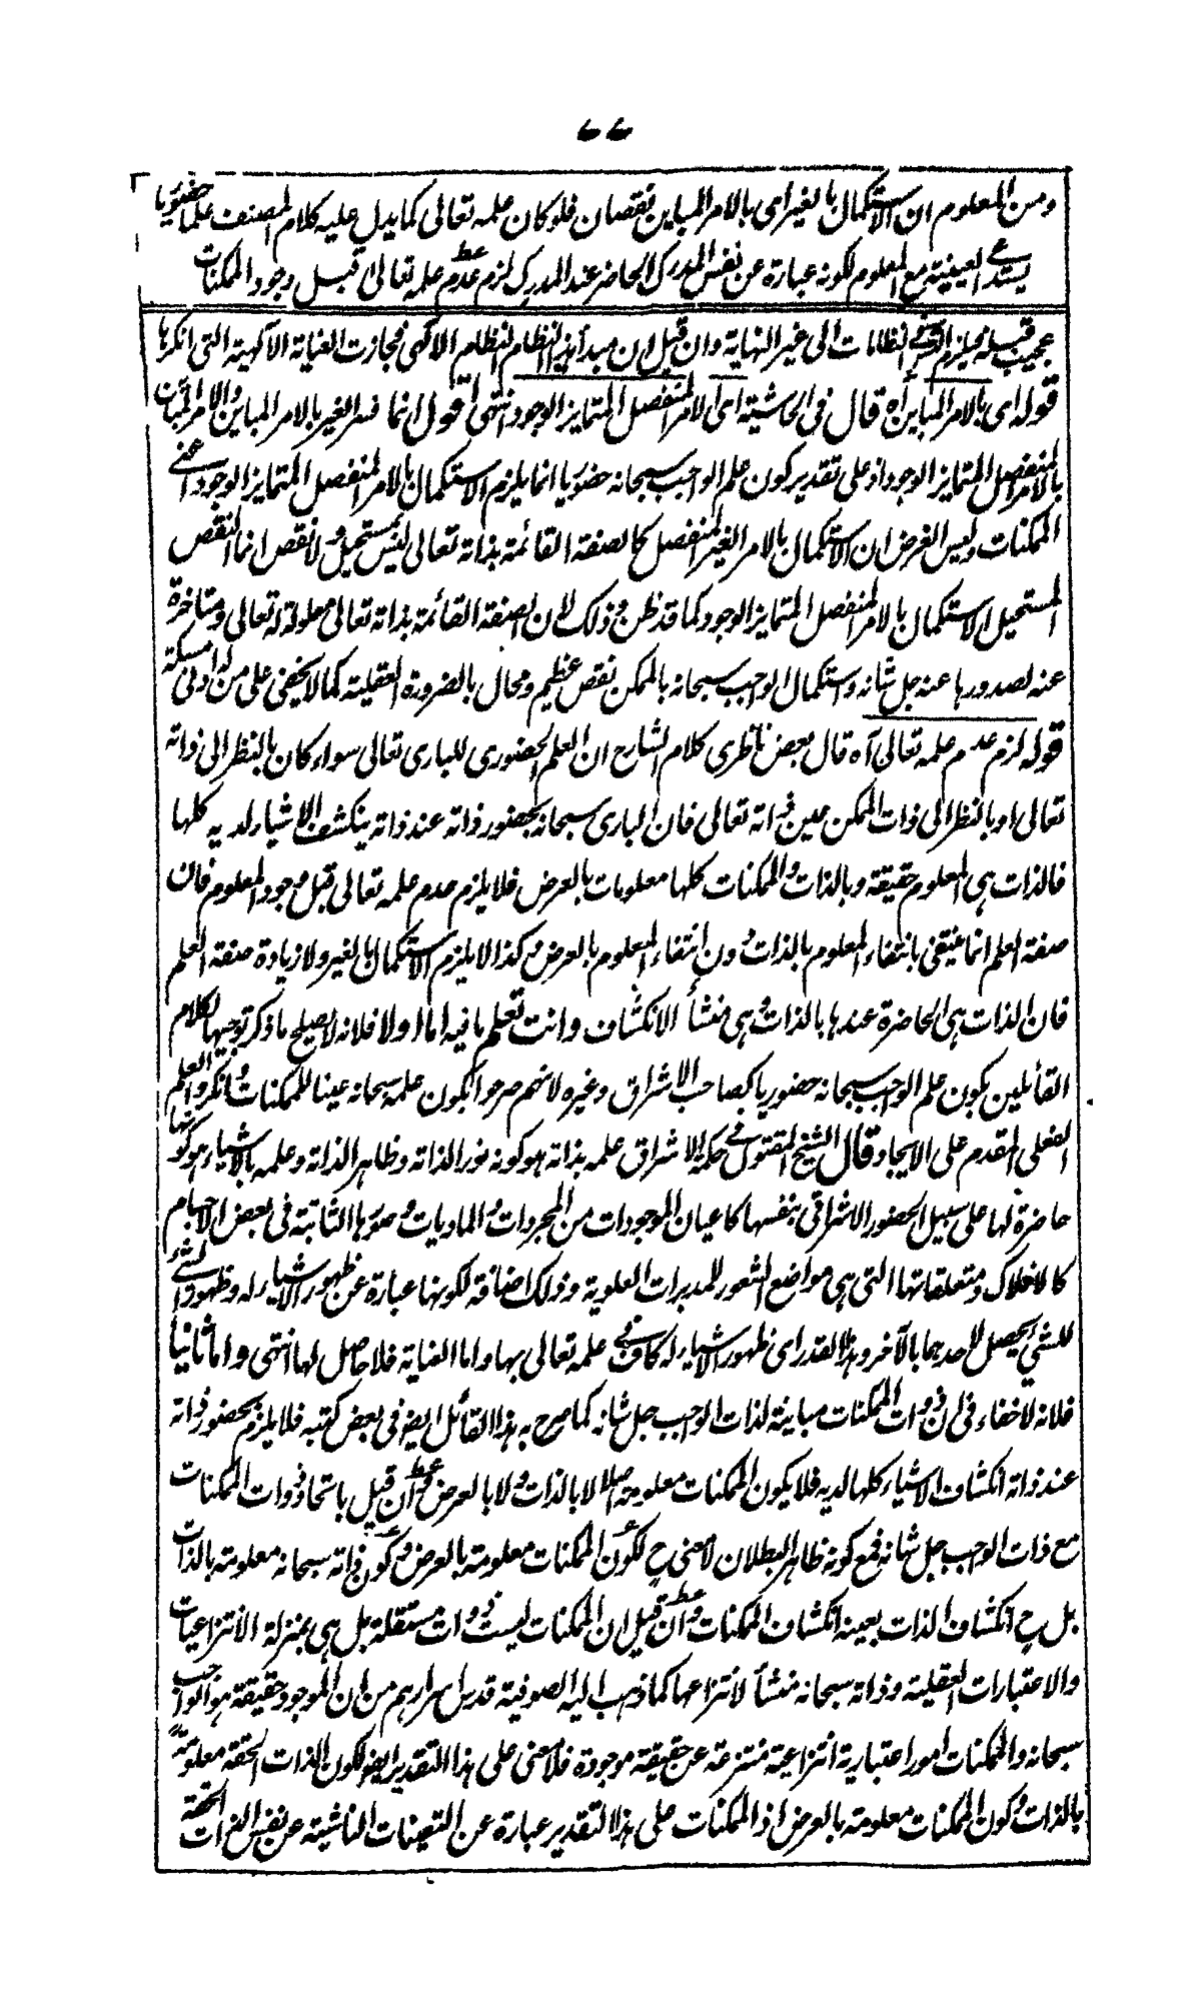 ۷۷
ومن المعلوم ان الاستكمال بالغير اى بالامر المباين نقصان فلو كان علمه تعالى كما يدل عليه كلام المصنف علما حضوريا
يستدعى العينية مع المعلوم لكونه عبارة عن نفس المدرك الحاضر عند المدرك لزم عدم علمه تعالى قبل وجود الممكنات
النظامات الى غير النهاية وان قيل ان مبدأ هذا النظام النظام الالهى فجازت العناية الالهية التى انكرها
قوله اى بالامر المباين آه قال فى الحاشية اى الامر المنفصل المتمايز الوجود انتهى اقول انما فسر الغير بالامر المباين والامر المباين
بالامر المنفصل المتمايز الوجود اذ على تقدير كون علم الواجب سبحانه حضوريا انما يلزم الاستكمال بالامر المنفصل المتمايز الوجود اعنى
الممكنات وليس الغرض ان الاستكمال بالامر الغير المنفصل كالصفة القائمة بذاته تعالى ليس بمستحيل ولا نقص انما النقص
المستحيل الاستكمال بالامر المنفصل المتمايز الوجود كما قد ظن وذلك لان الصفة القائمة بذاته تعالى معلولة له تعالى ومتاخرة
عنه لصدورها عنه جل شانه واستكمال الواجب سبحانه بالممكن نقص عظيم ومحال بالضرورة العقلية كما لا يخفى على من له ادنى مسكة
قوله لزم عدم علمه تعالى آه قال بعض ناظرى كلام الشارح ان العلم الحضورى للبارى تعالى سواء كان بالنظر الى ذاته
تعالى او بالنظر الى ذات الممكن عين ذاته تعالى فان البارى سبحانه بحضور ذاته عند ذاته ينكشف الاشياء لديه كلها
فالذات هى المعلوم حقيقة وبالذات والممكنات كلها معلومات بالعرض فلا يلزم عدم علمه تعالى قبل وجود المعلوم فان
صفة العلم انما ينتفى بانتفاء المعلوم بالذات دون انتفاء المعلوم بالعرض وكذا لا يلزم الاستكمال بالغير ولا زيادة صفة العلم
فان الذات هى الحاضرة عندها بالذات وهى منشأ الانكشاف وانت تعلم ما فيه اما اولا فلانه لا يصلح ما ذكر توجيها لكلام
القائلين بكون علم الواجب سبحانه حضوريا كصاحب الاشراق وغيره لانهم صرحوا بكون علمه سبحانه عينا للممكنات وانكروا العلم
الفعلى المقدم على الايجاد قال الشيخ المقتول فى حكمة الاشراق علمه بذاته هو كونه نورا لذاته وظاهرا لذاته وعلمه بالاشياء هو كونها
حاضرة لها على سبيل الحضور الاشراقى بنفسها كاعيان الموجودات من المجردات والماديات وصورها الثابتة فى بعض الاجسام
كالافلاك ومتعلقاتها التى هى مواضع الشعور للمدبرات العلوية وذلك اضافة لكونها عبارة عن ظهور الاشياء له وظهور الشئ
للشئ يحصل لاحدهما بالآخر وهذا القدر اى ظهور الاشياء له كاف فى علمه تعالى بها واما العناية فلا حاصل لها انتهى واما ثانيا
فلانه لا خفاء فى ان ذوات الممكنات مباينة لذات الواجب جل شانه كما صرح به هذا القائل ايضو فى بعض كتبه فلا يلزم بحضور ذاته
عند ذاته انكشاف الاشياء كلها لديه فلا يكون الممكنات معلومة اصلا لا بالذات ولا بالعرض وان قيل باتحاد ذوات الممكنات
مع ذات الواجب جل شانه فمع كونه ظاهر البطلان لا معنى ح لكون الممكنات معلومة بالعرض وكون ذاته سبحانه معلومة بالذات
بل ح انكشاف الذات بعينه انكشاف الممكنات وان قيل ان الممكنات ليست ذوات مستقلة بل هى بمنزلة الانتزاعيات
والاعتبارات العقلية وذاته سبحانه منشأ لانتزاعها كما ذهب اليه الصوفية قدس اسرارهم من ان الموجود حقيقة هو الواجب
سبحانه والممكنات امور اعتبارية انتزاعية منتزعة عن حقيقة موجودة فلا معنى على هذا التقدير ايضو لكون الذات الحقة معلومة
بالذات وكون الممكنات معلومة بالعرض اذ الممكنات على هذا التقدير عبارة عن التعينات الناشية عن نفس الذات الحقة